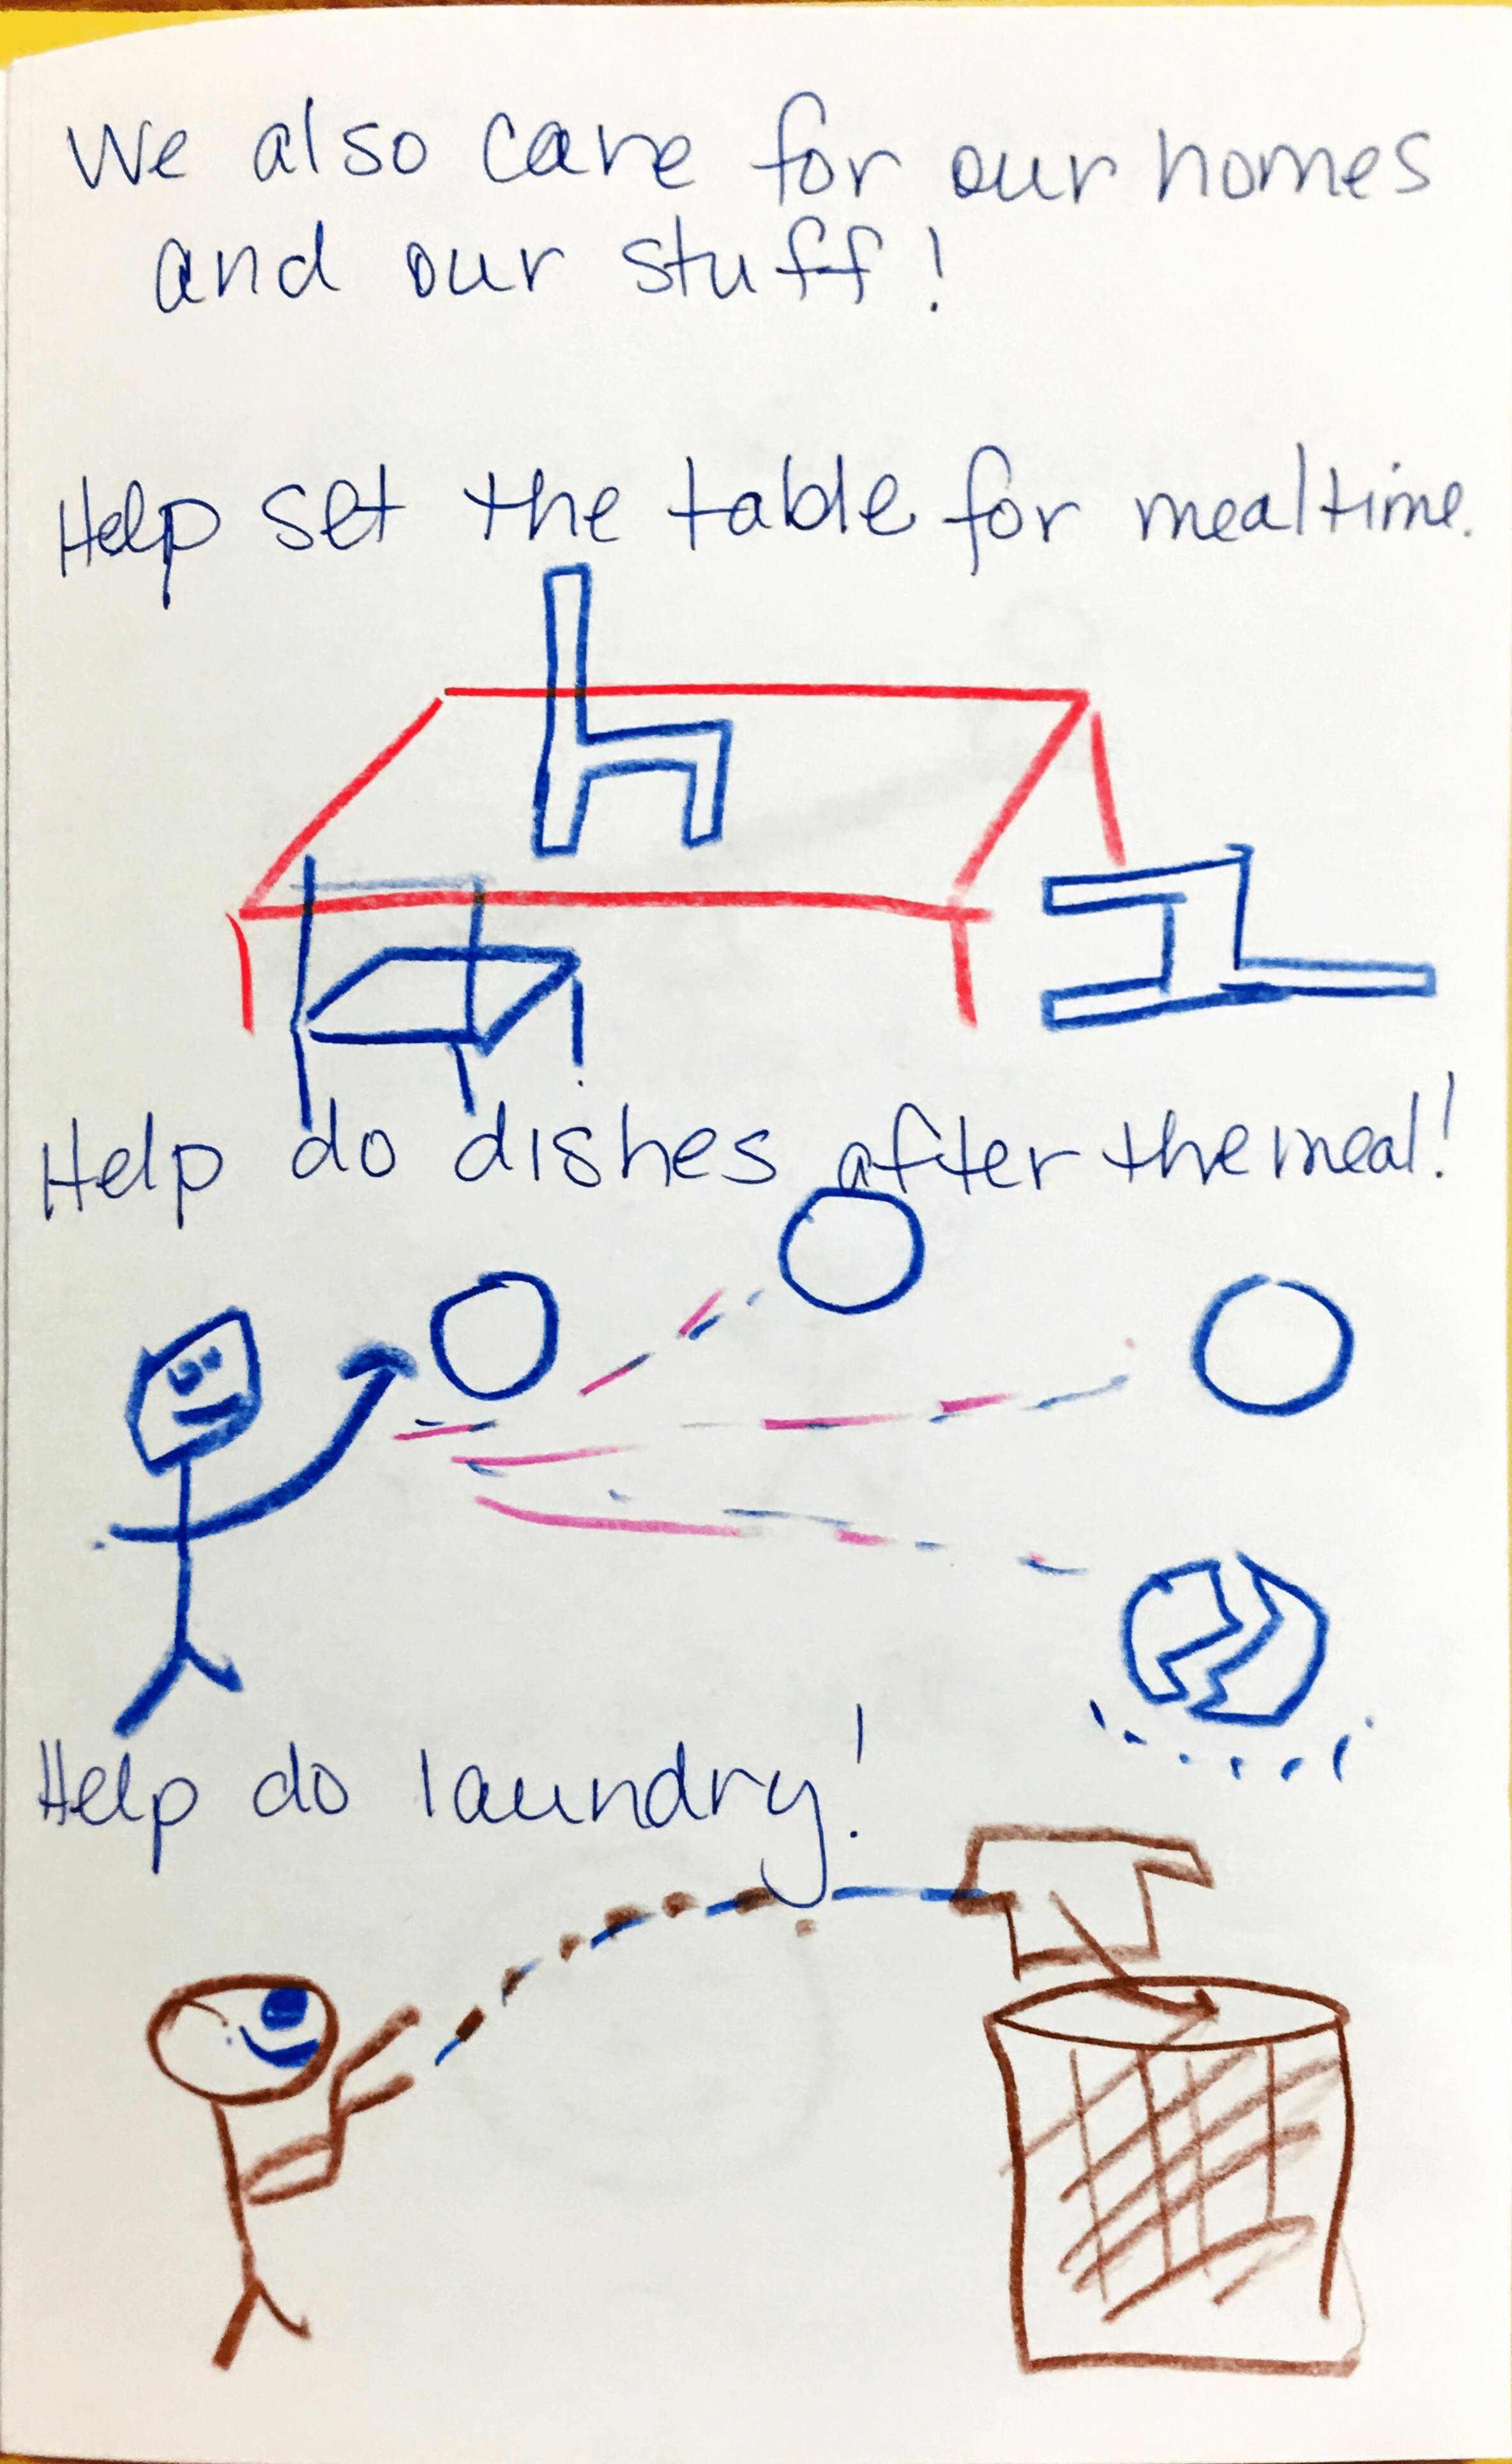 We also care for our homes
and our stuff!
Help set the table for mealtime.
Help do dishes after the meal!
Help do laundry!